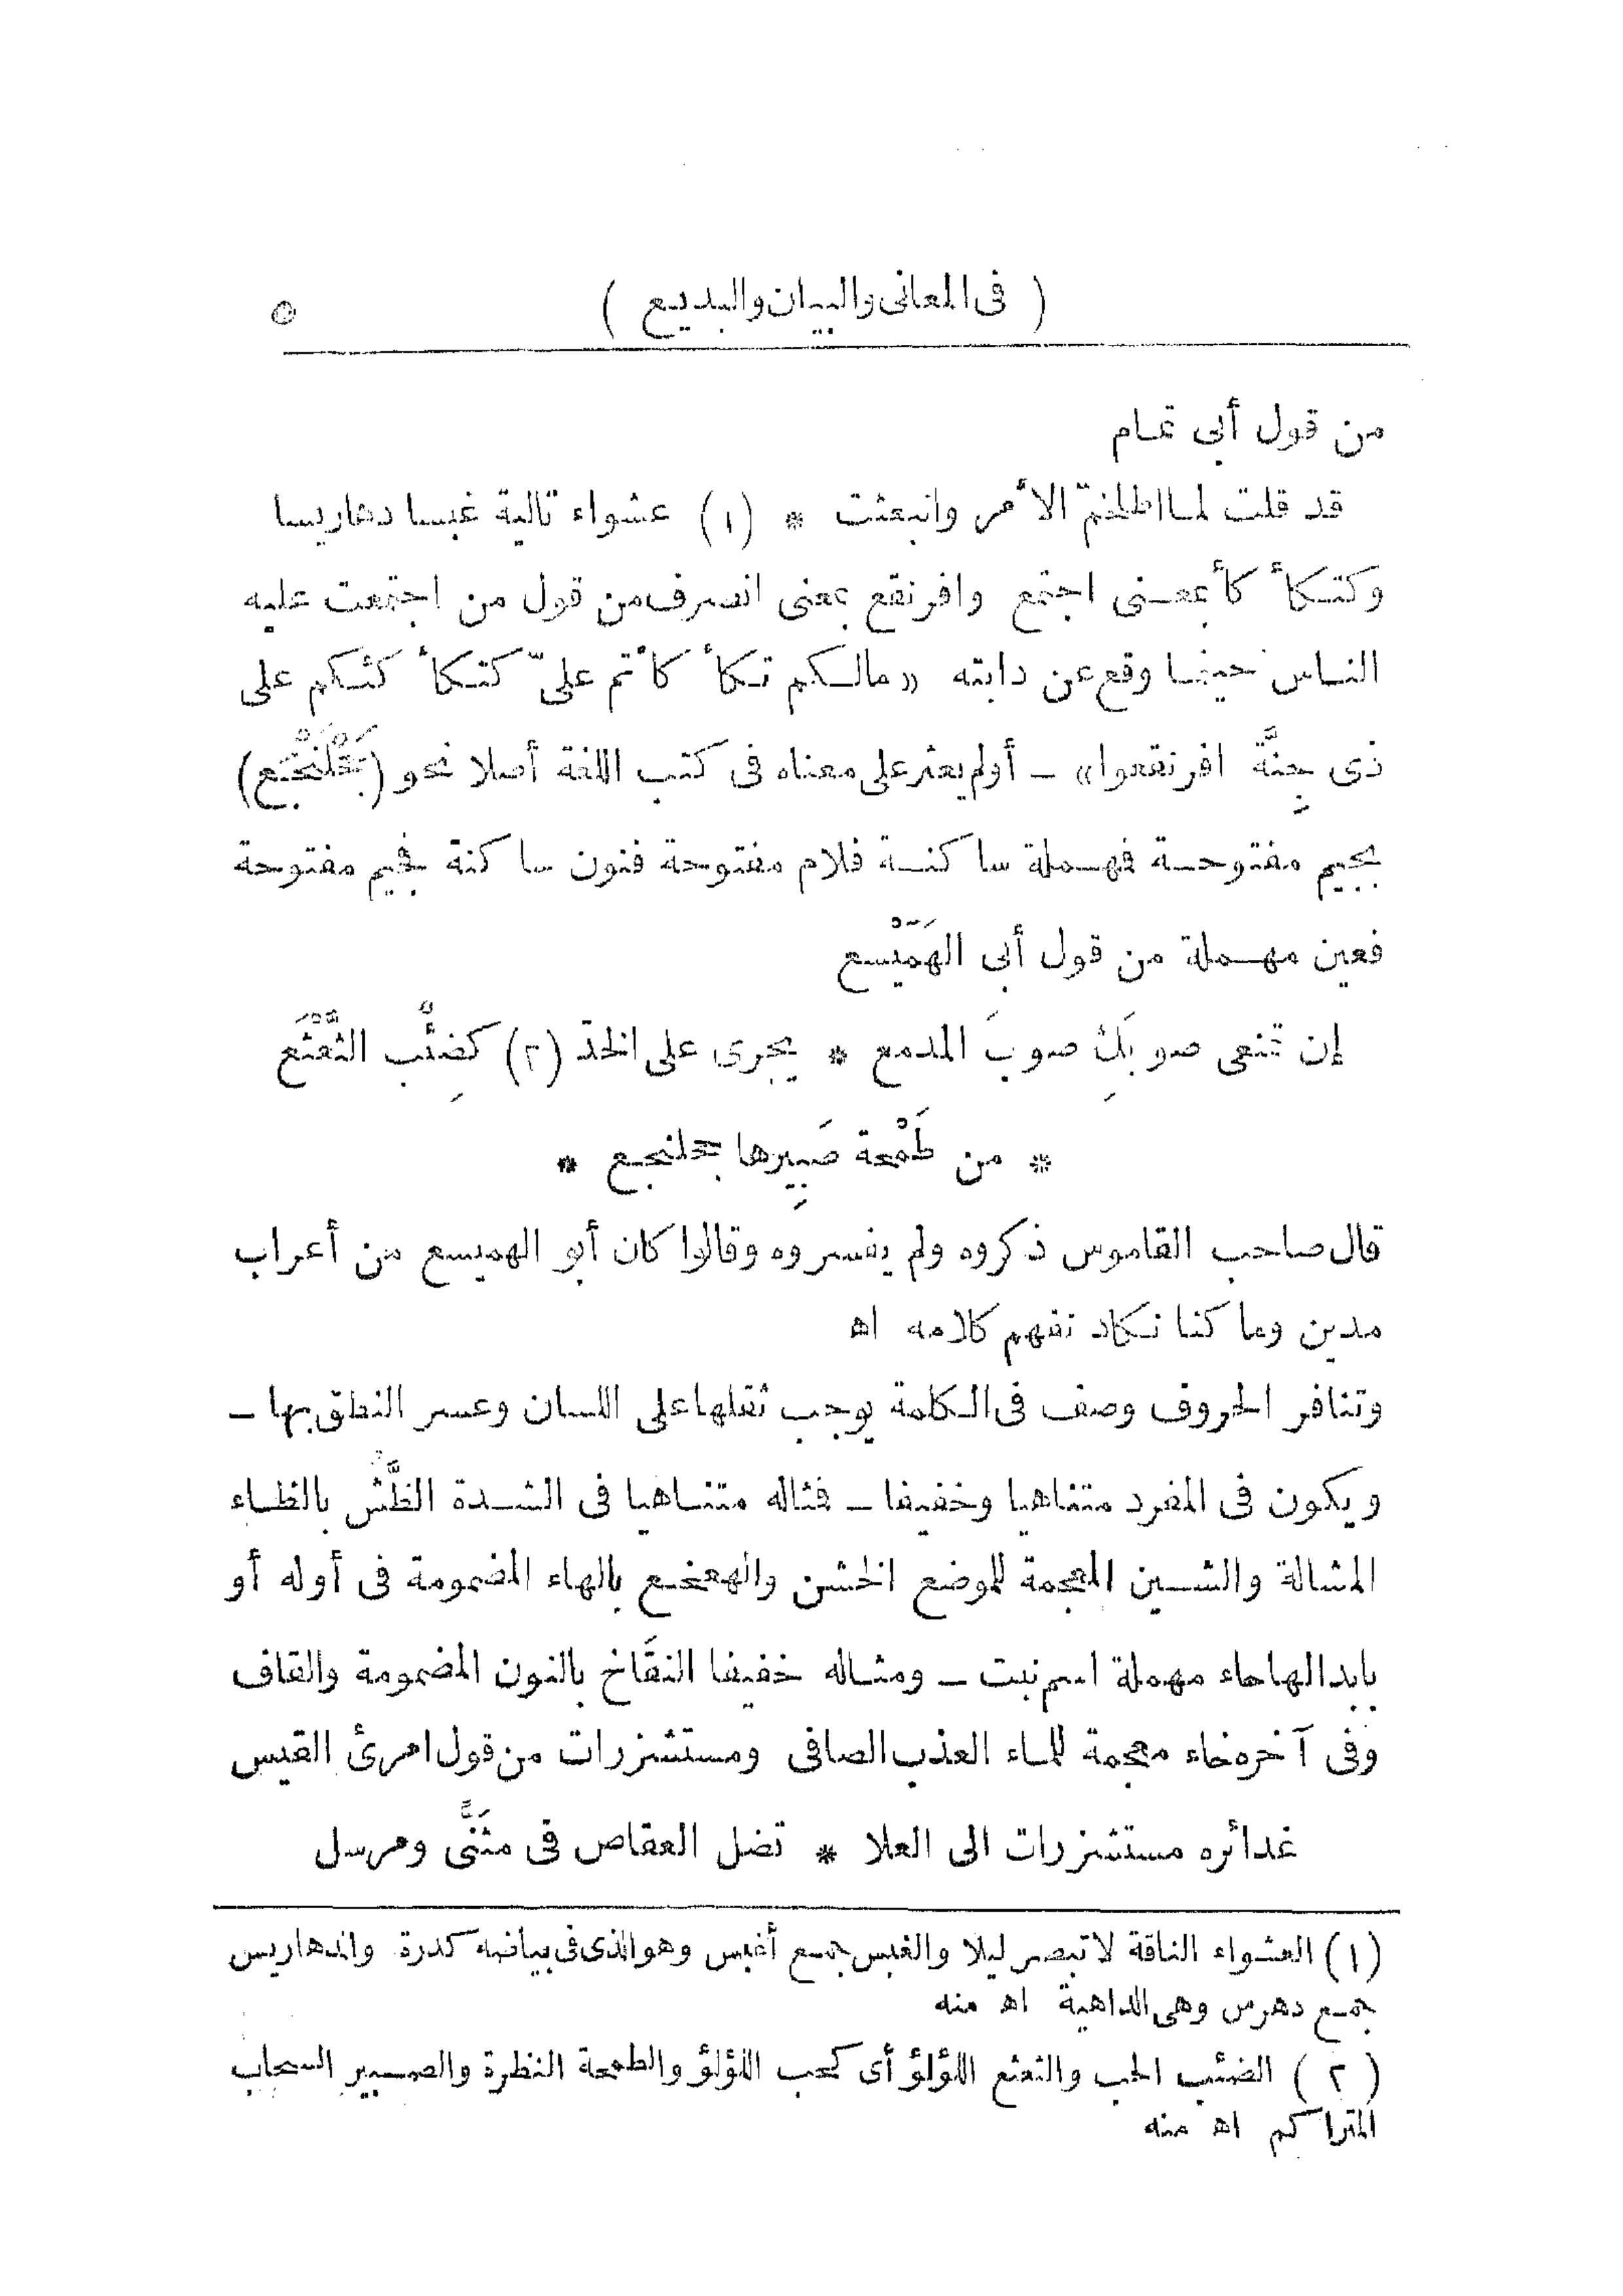 ( فى المعانى والبيان والبديع ) ٥
من قول أبى تمام
قد قلت لما اطلخمّ الأمر وانبعثت * (١) عشواء تالية غبسا دهاريسا
وكتكأ كأ بمعنى اجتمع وافرنقع بمعنى انصرف من قول من اجتمعت عليه
الناس حينما وقع عن دابته «مالكم تكأ كأتم علىّ كتكأ كئكم على
ذى جِنَّة افرنقعوا» – أو لم يعثر على معناه فى كتب اللغة أصلا نحو (جَحْلَنْجَع)
بجيم مفتوحة فمهملة ساكنة فلام مفتوحة فنون ساكنة فجيم مفتوحة
فعين مهملة من قول أبى الهَمَيْسع
إن تمنعى صوبَكِ صوبَ المدمع * يجرى على الخدّ (٢) كضِئْبِ الثَّعْثَع
* من طَمْحة صَبِيرها جحلنجع *
قال صاحب القاموس ذكروه ولم يفسروه وقالوا كان أبو الهميسع من أعراب
مدين وما كنا نكاد نفهم كلامه اه
وتنافر الحروف وصف فى الكلمة يوجب ثقلها على اللسان وعسر النطق بها –
ويكون فى المفرد متناهيا وخفيفا – فمثاله متناهيا فى الشدة الظَّش بالظاء
المشالة والشين المعجمة للموضع الخشن والهعخع بالهاء المضمومة فى أوله أو
بابدالها حاء مهملة اسم نبت – ومثاله خفيفا النقَاخ بالنون المضمومة والقاف
وفى آخره خاء معجمة للماء العذب الصافى ومستشزرات من قول امرئ القيس
غدائره مستشزرات الى العلا * تضل العقاص فى مثنًّى ومرسل
(١) العشواء الناقة لا تبصر ليلا والغبس جمع أغبس وهو الذى فى بياضه كدرة والدهاريس
جمع دهرس وهى الداهية اه منه
(٢) الضئب الحب والثعثع اللؤلؤ أى كحب اللؤلؤ والطمحة النظرة والصبير السحاب
المتراكم اه منه